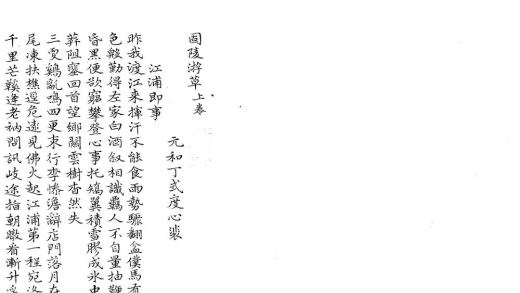 固陵游草上卷
元和丁弍度心裴
江浦即事
昨我渡江來揮汗不能食雨勢驟翻盆僕馬有
色殷勤得左家白酒叙相識羈人不自量抽鞭
昏黑便欲窮攀登心事托矯翼積雪膠成氷虫
葬阻塞回首望鄉關雲樹杳然失
三更鷄亂鳴四更束行李慘澹辭店門落月在
尾凍扶樵逕危遠見佛火起江浦第一程宛洛
千里芒鞵逢老衲問訊歧途指朝暾看漸升